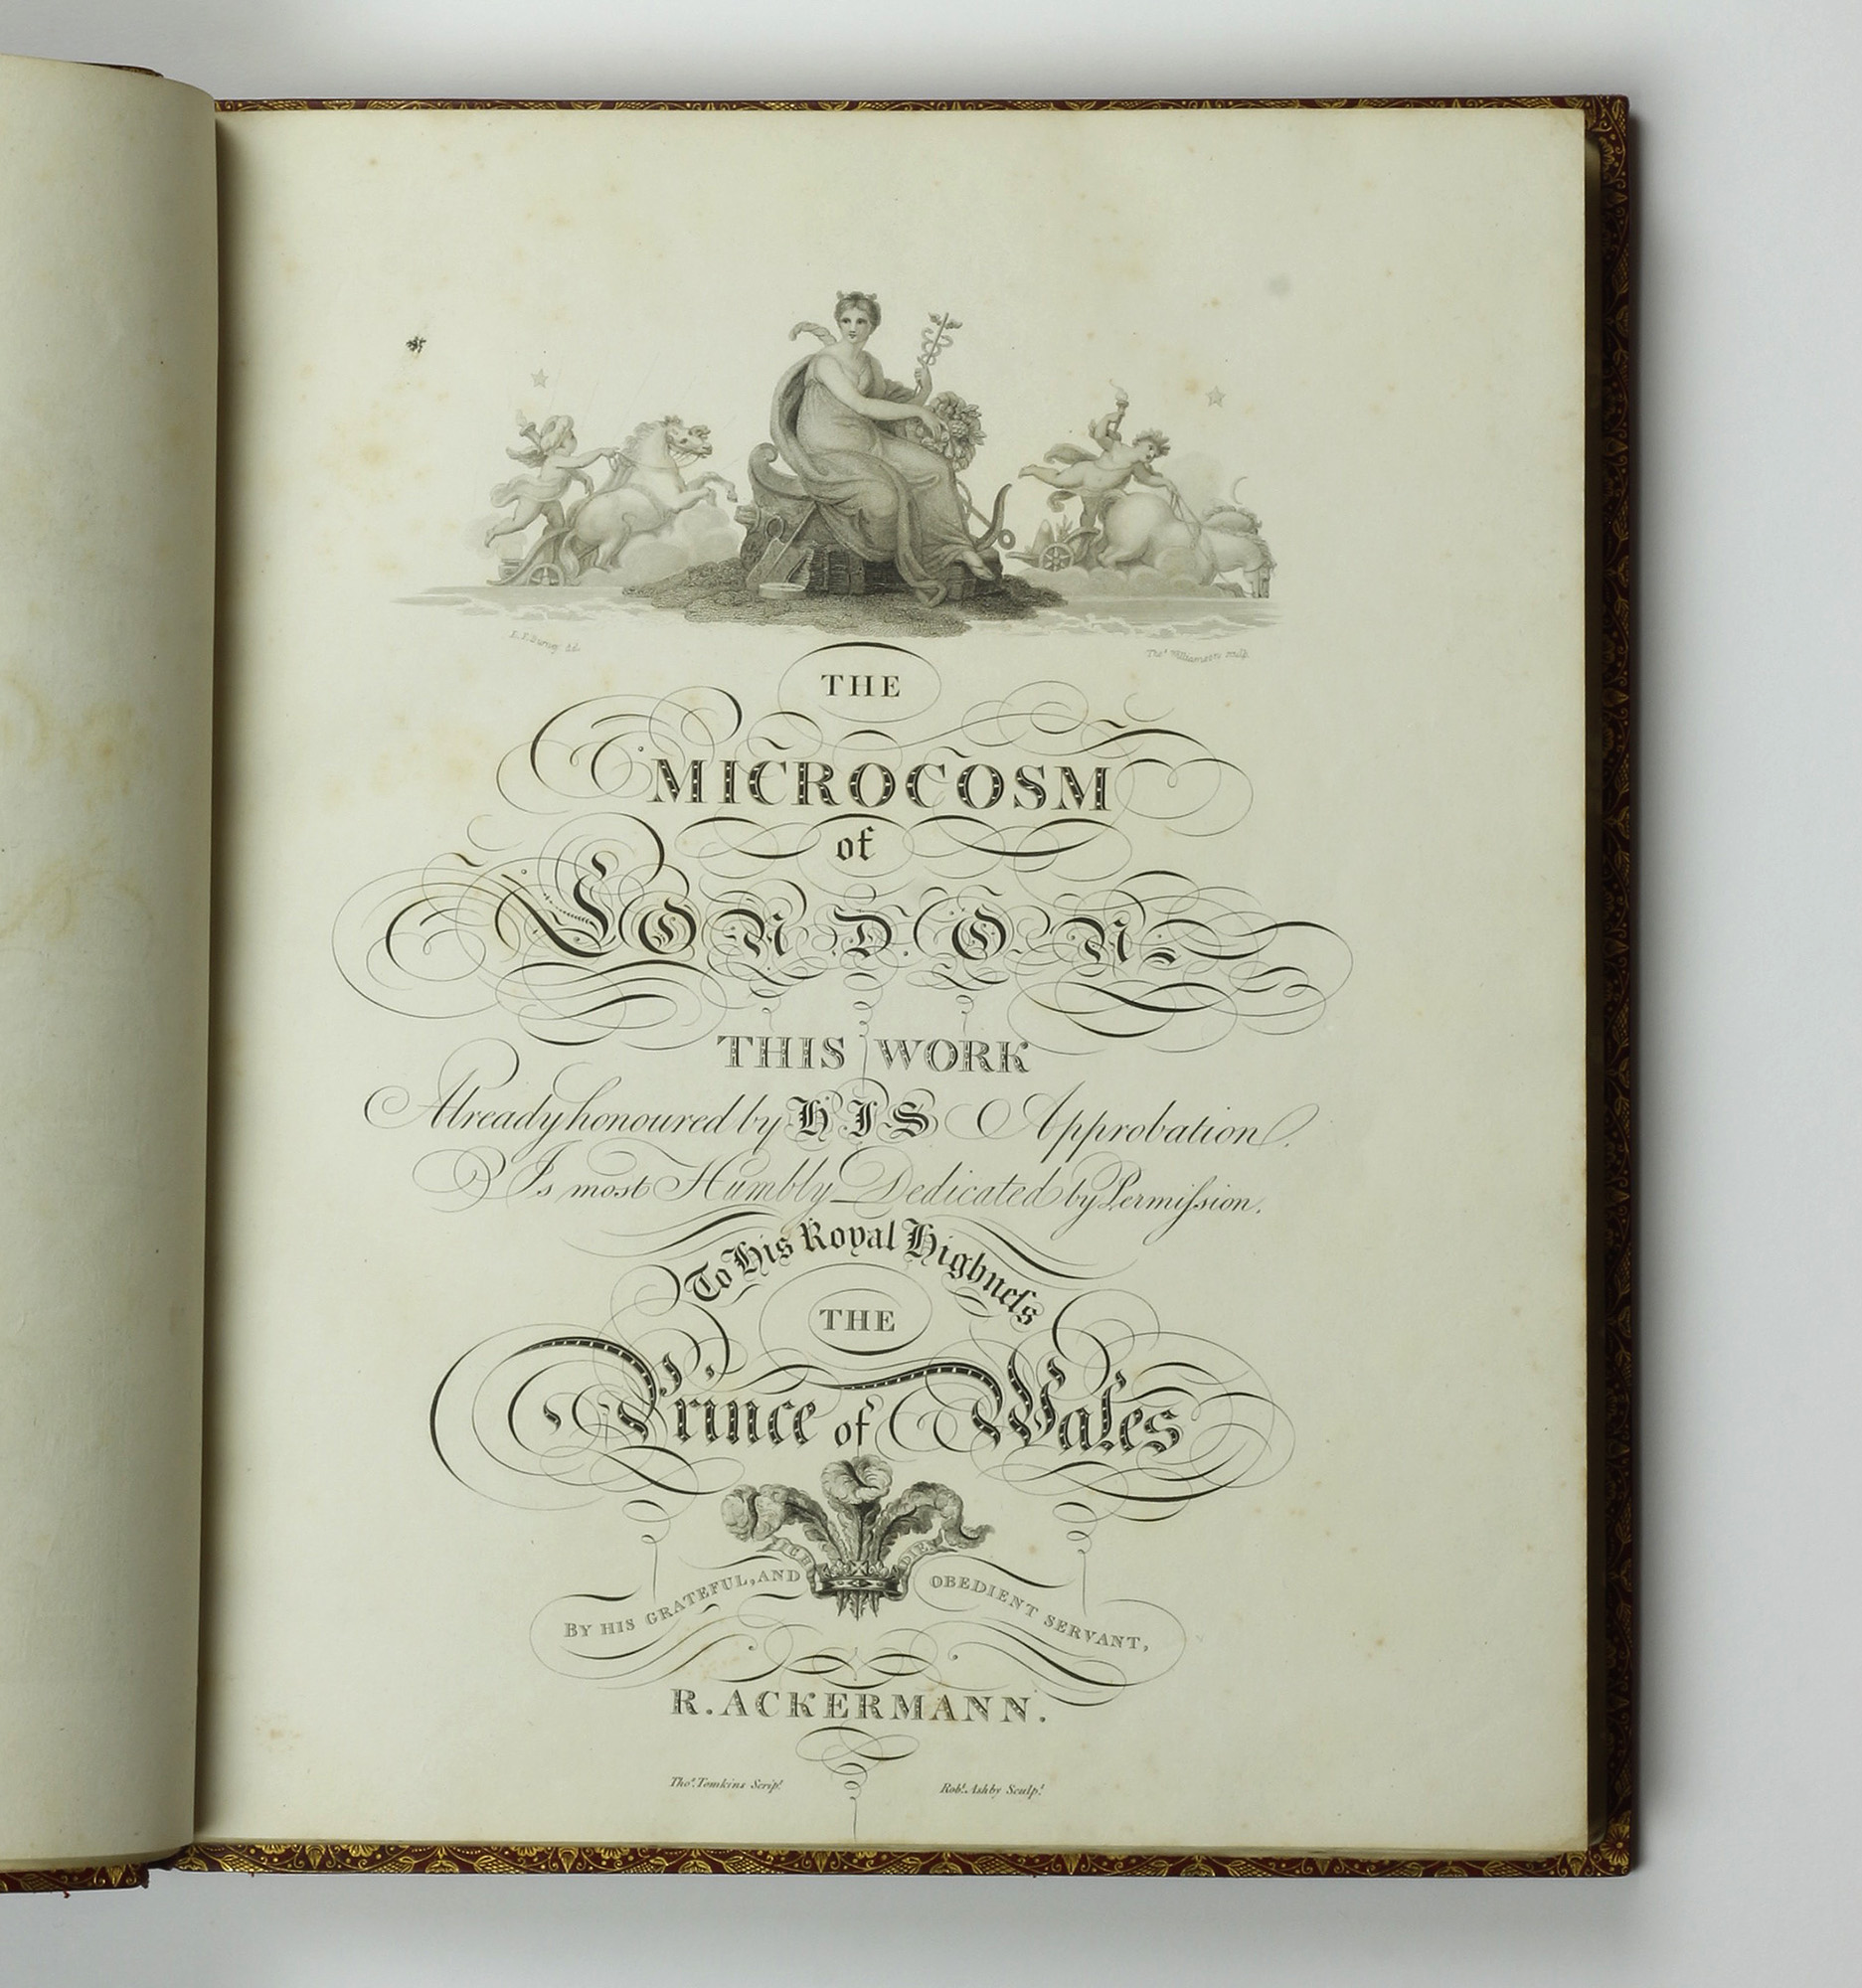 E. F. Burney del.
Thoˢ Williamson sculp.
THE
MICROCOSM
of
LONDON.
THIS WORK
Already honoured by HIS Approbation.
Is most Humbly Dedicated by Permiſsion.
To His Royal Highneſs
THE
Prince of Wales
ICH DIEN
BY HIS GRATEFUL, AND OBEDIENT SERVANT,
R. ACKERMANN.
Thoˢ. Tomkins Scripᵗ.
Robᵗ. Ashby Sculpᵗ.